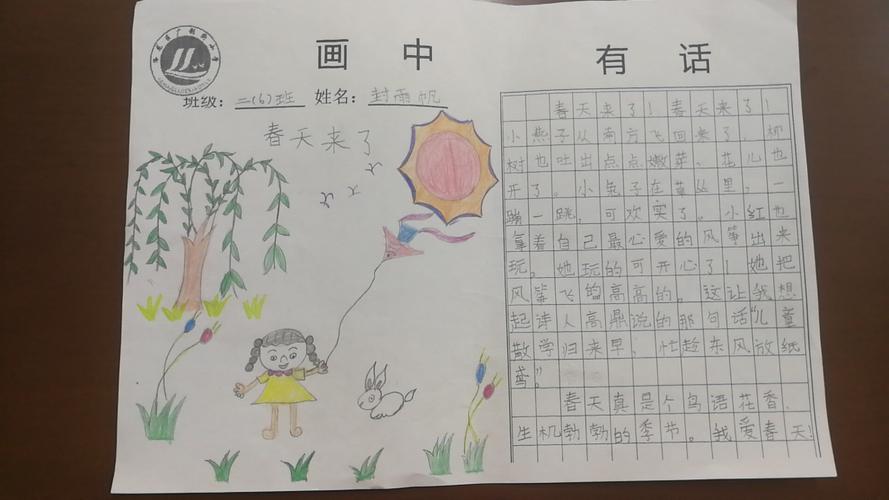 画中有话
班级：二(6)班 姓名：封雨帆
春天来了
春天来了！春天来了！
小燕子从南方飞回来了，柳
树也吐出点点嫩芽、花儿也
开了。小兔子在草丛里，一
蹦一跳，可欢实了。小红也
拿着自己最心爱的风筝出来
玩，她玩的可开心了！她把
风筝飞的高高的。这让我想
起诗人高鼎说的那句话“儿童
散学归来早，忙趁东风放纸
鸢”。
春天真是个鸟语花香、
生机勃勃的季节。我爱春天！